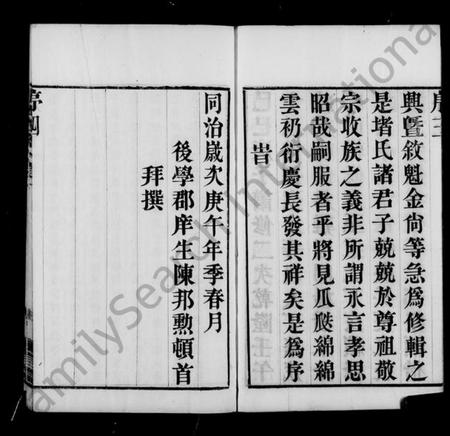 序三
興暨敘魁金尙等急爲修輯之
是堵氏諸君子兢兢於尊祖敬
宗收族之義非所謂永言孝思
昭哉嗣服者乎將見瓜瓞綿綿
雲礽衍慶長發其祥矣是爲序
旹
同治歲次庚午年季春月
後學郡庠生陳邦勲頓首
拜撰
序四
FamilySearch International